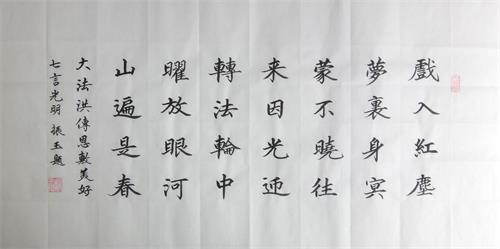 戲入紅塵
夢裏身冥
蒙不曉往
来因光迎
轉法輪中
曜放眼河
山遍是春
大法洪傳恩數美好
七言光明 振玉題